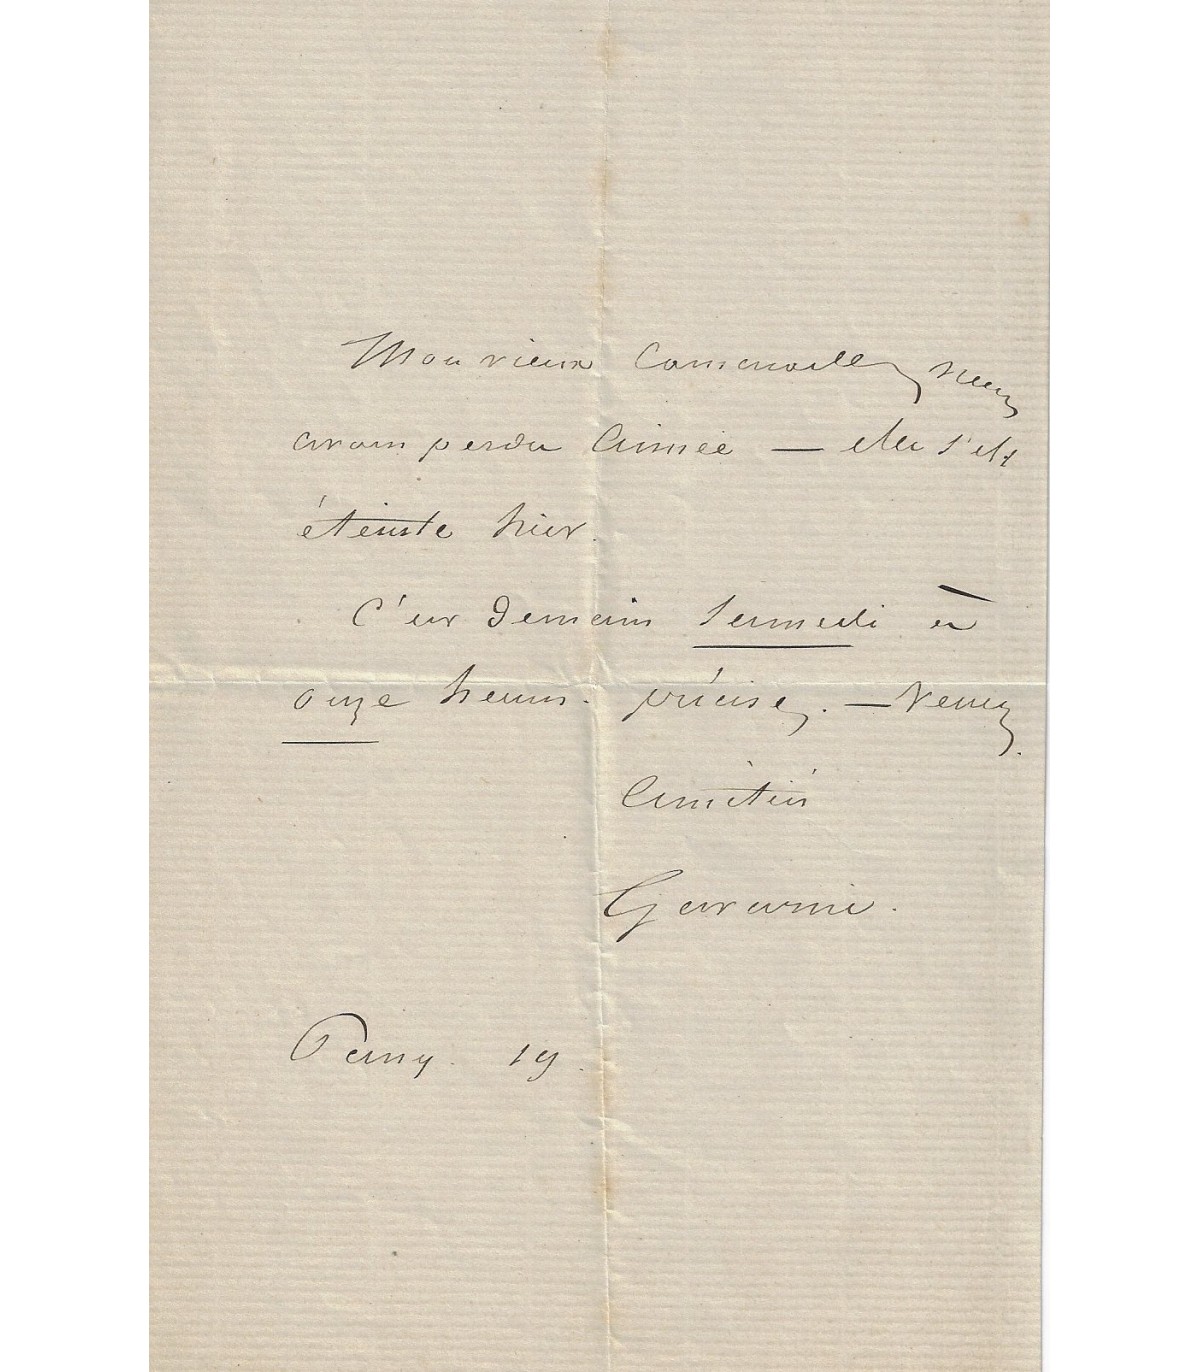 Mon vieux Camarade, nous
avons perdu Aimée — elle s'est
éteinte hier.
C'est demain Samedi à
onze heures précises. — Venez.
Amitiés
Gavarni.
Passy. 19.